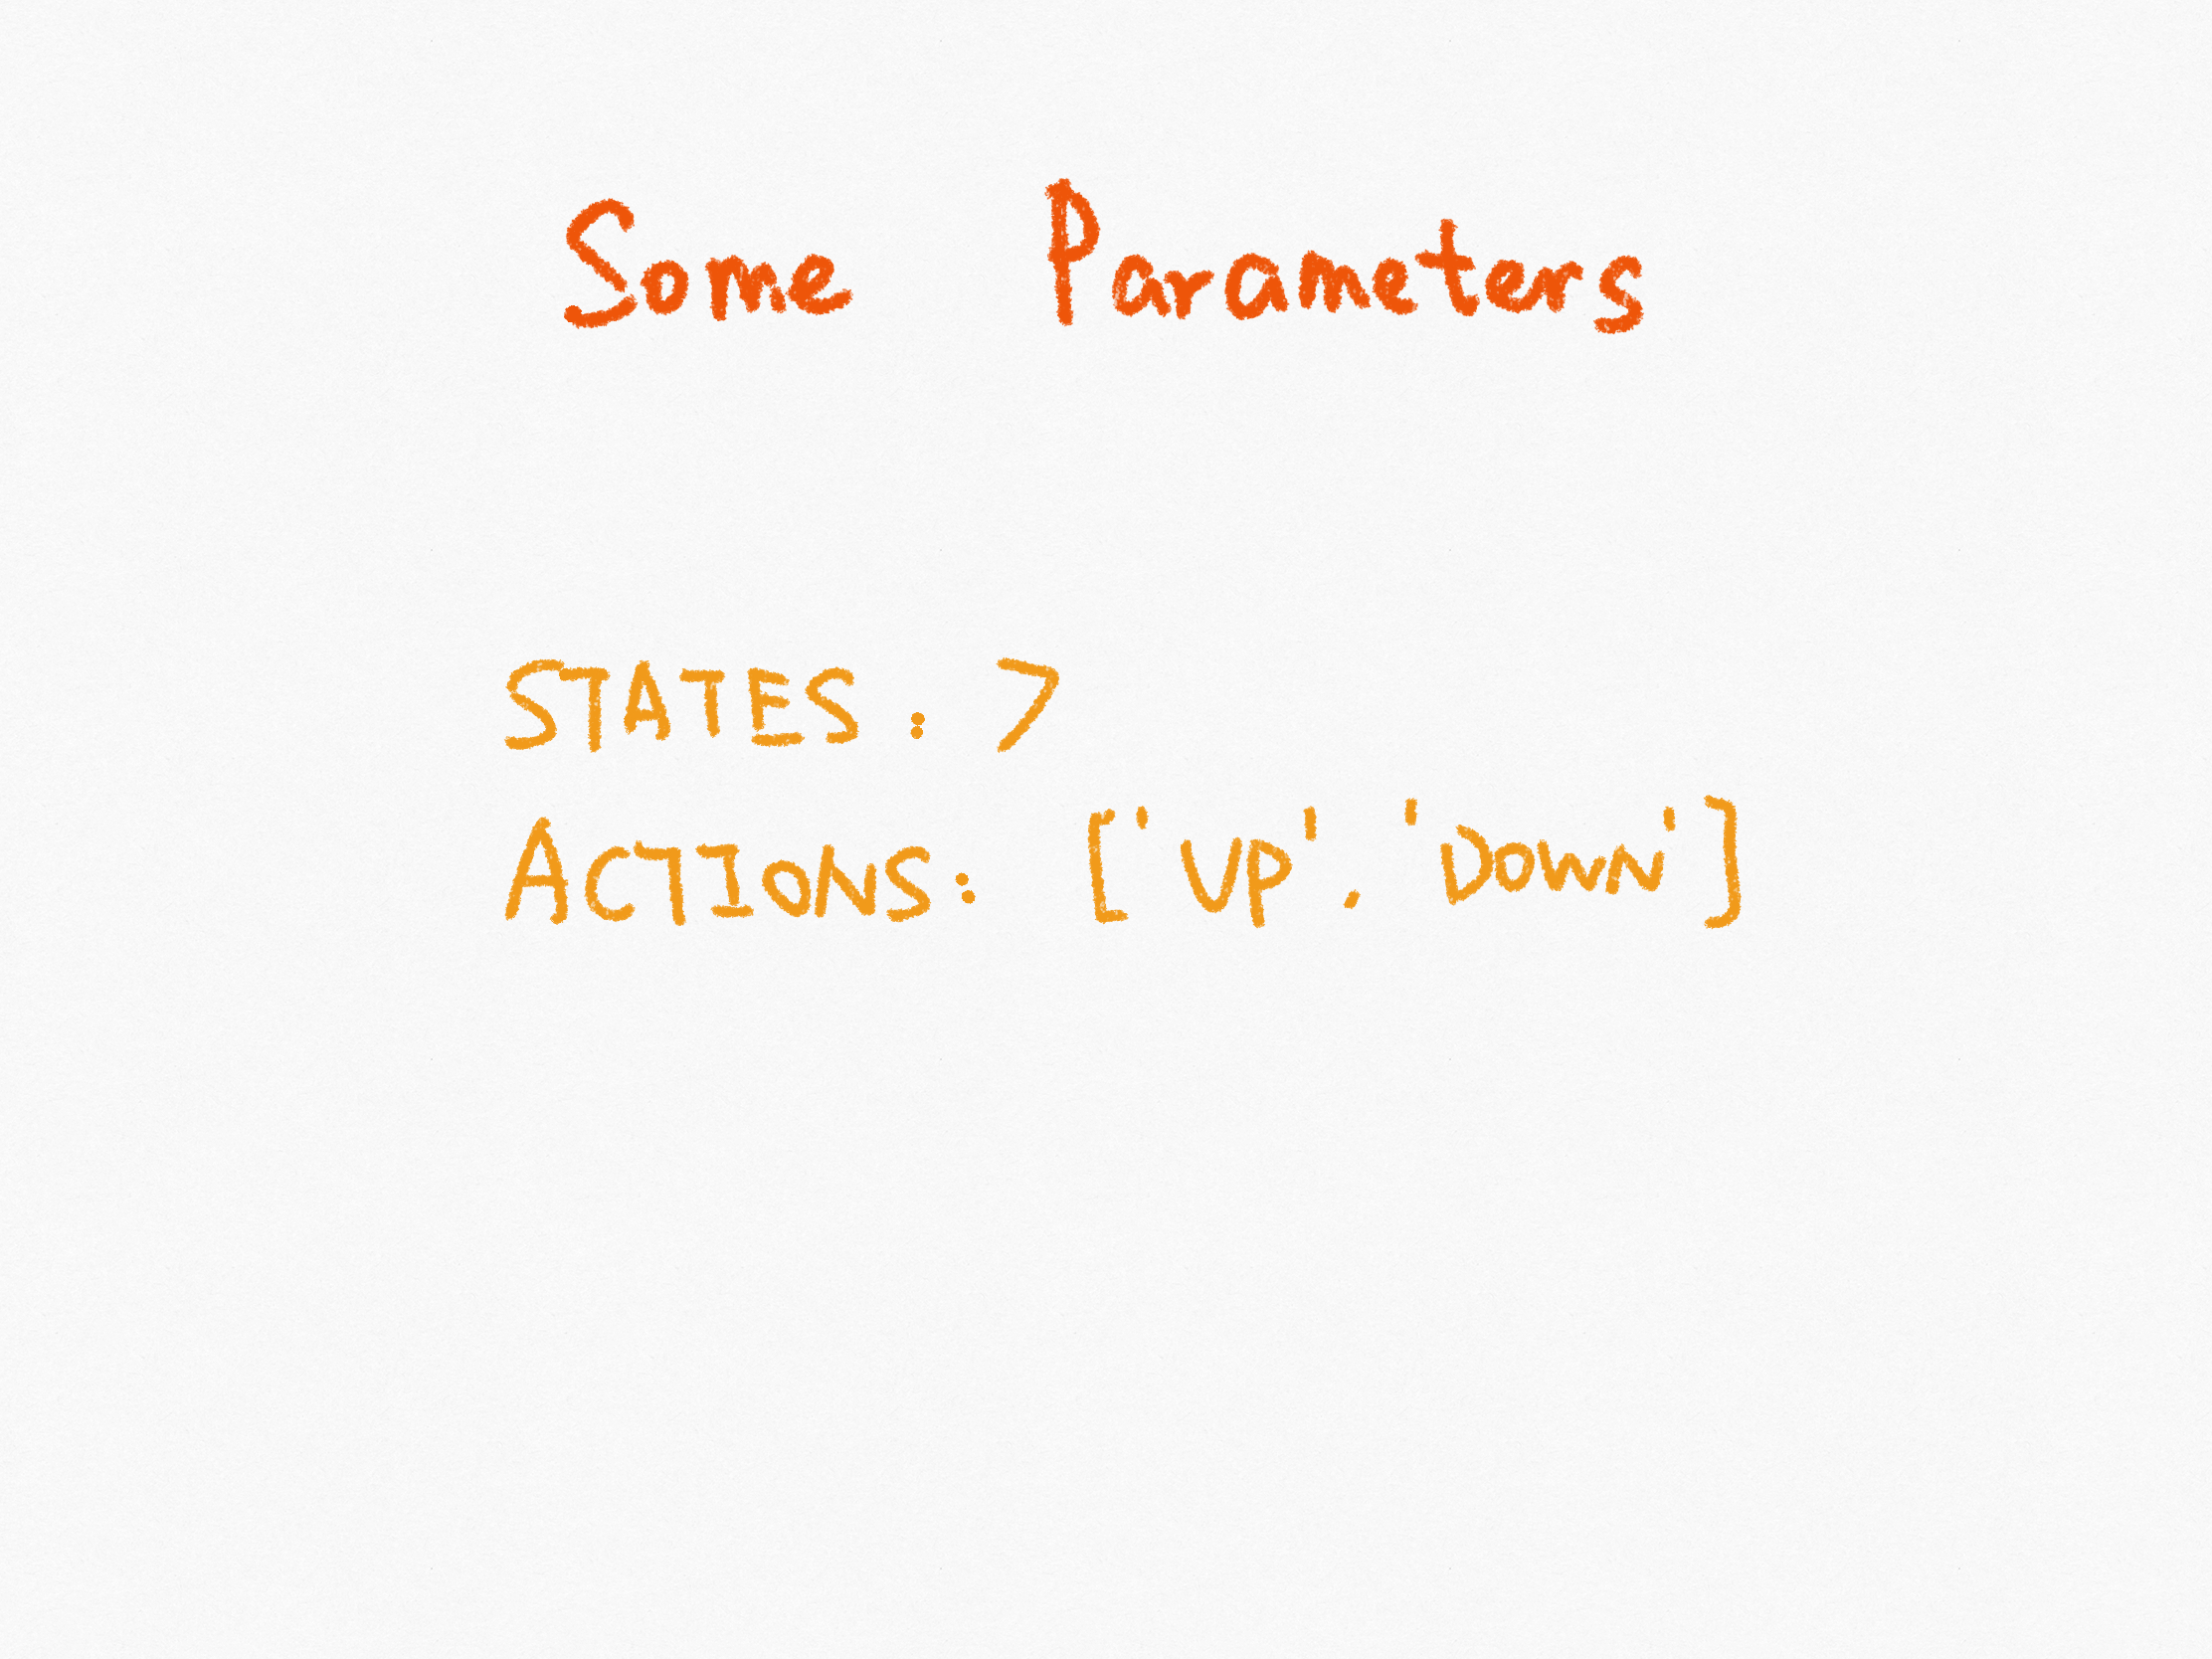 Some Parameters
STATES: 7
ACTIONS: ['UP', 'DOWN']